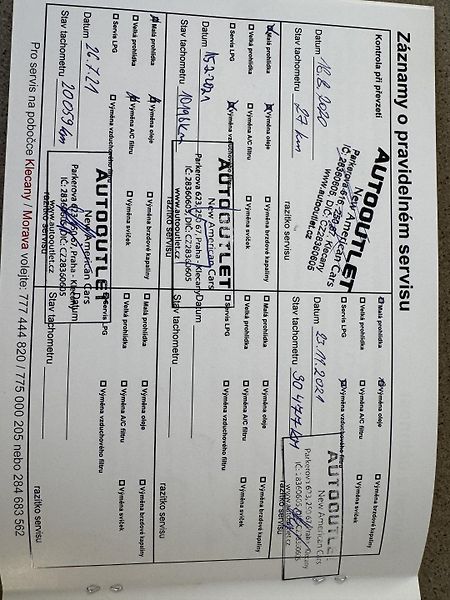 Záznamy o pravidelném servisu
Kontrola při převzetí
Datum 18.8.2020
Stav tachometru 27 km
razítko servisu
AUTOOUTLET
New American Cars
Parkerova 623, 250 67, Praha - Klecany
IČ: 28360605, DIČ: CZ28360605
www.autooutlet.cz
Malá prohlídka
Výměna oleje
Výměna brzdové kapaliny
Velká prohlídka
Výměna A/C filtru
Výměna svíček
Servis LPG
Výměna vzduchového filtru
Datum 15.2.2021
Stav tachometru 10196 km
razítko servisu
AUTOOUTLET
New American Cars
Parkerova 623, 250 67, Praha - Klecany
IČ: 28360605, DIČ: CZ28360605
www.autooutlet.cz
Malá prohlídka
Výměna oleje
Výměna brzdové kapaliny
Velká prohlídka
Výměna A/C filtru
Servis LPG
Výměna vzduchového filtru
Datum 26.7.21
Stav tachometru 20059 km
razítko servisu
AUTOOUTLET
New American Cars
Parkerova 623, 250 67, Praha - Klecany
IČ: 28360605, DIČ: CZ28360605
www.autooutlet.cz
Malá prohlídka
Výměna oleje
Výměna brzdové kapaliny
Velká prohlídka
Výměna A/C filtru
Výměna svíček
Servis LPG
Výměna vzduchového filtru
Datum 23.11.2021
Stav tachometru 30 477 km
razítko servisu
AUTOOUTLET
New American Cars
Parkerova 623, 250 67, Praha - Klecany
www.autooutlet.cz
Malá prohlídka
Výměna oleje
Výměna brzdové kapaliny
Velká prohlídka
Výměna A/C filtru
Výměna svíček
Servis LPG
Výměna vzduchového filtru
Datum
Stav tachometru
razítko servisu
Malá prohlídka
Výměna oleje
Výměna brzdové kapaliny
Velká prohlídka
Výměna A/C filtru
Výměna svíček
Servis LPG
Výměna vzduchového filtru
Datum
Stav tachometru
razítko servisu
Pro servis na pobočce Klecany / Morava volejte: 777 444 820 / 775 000 205 nebo 284 683 562